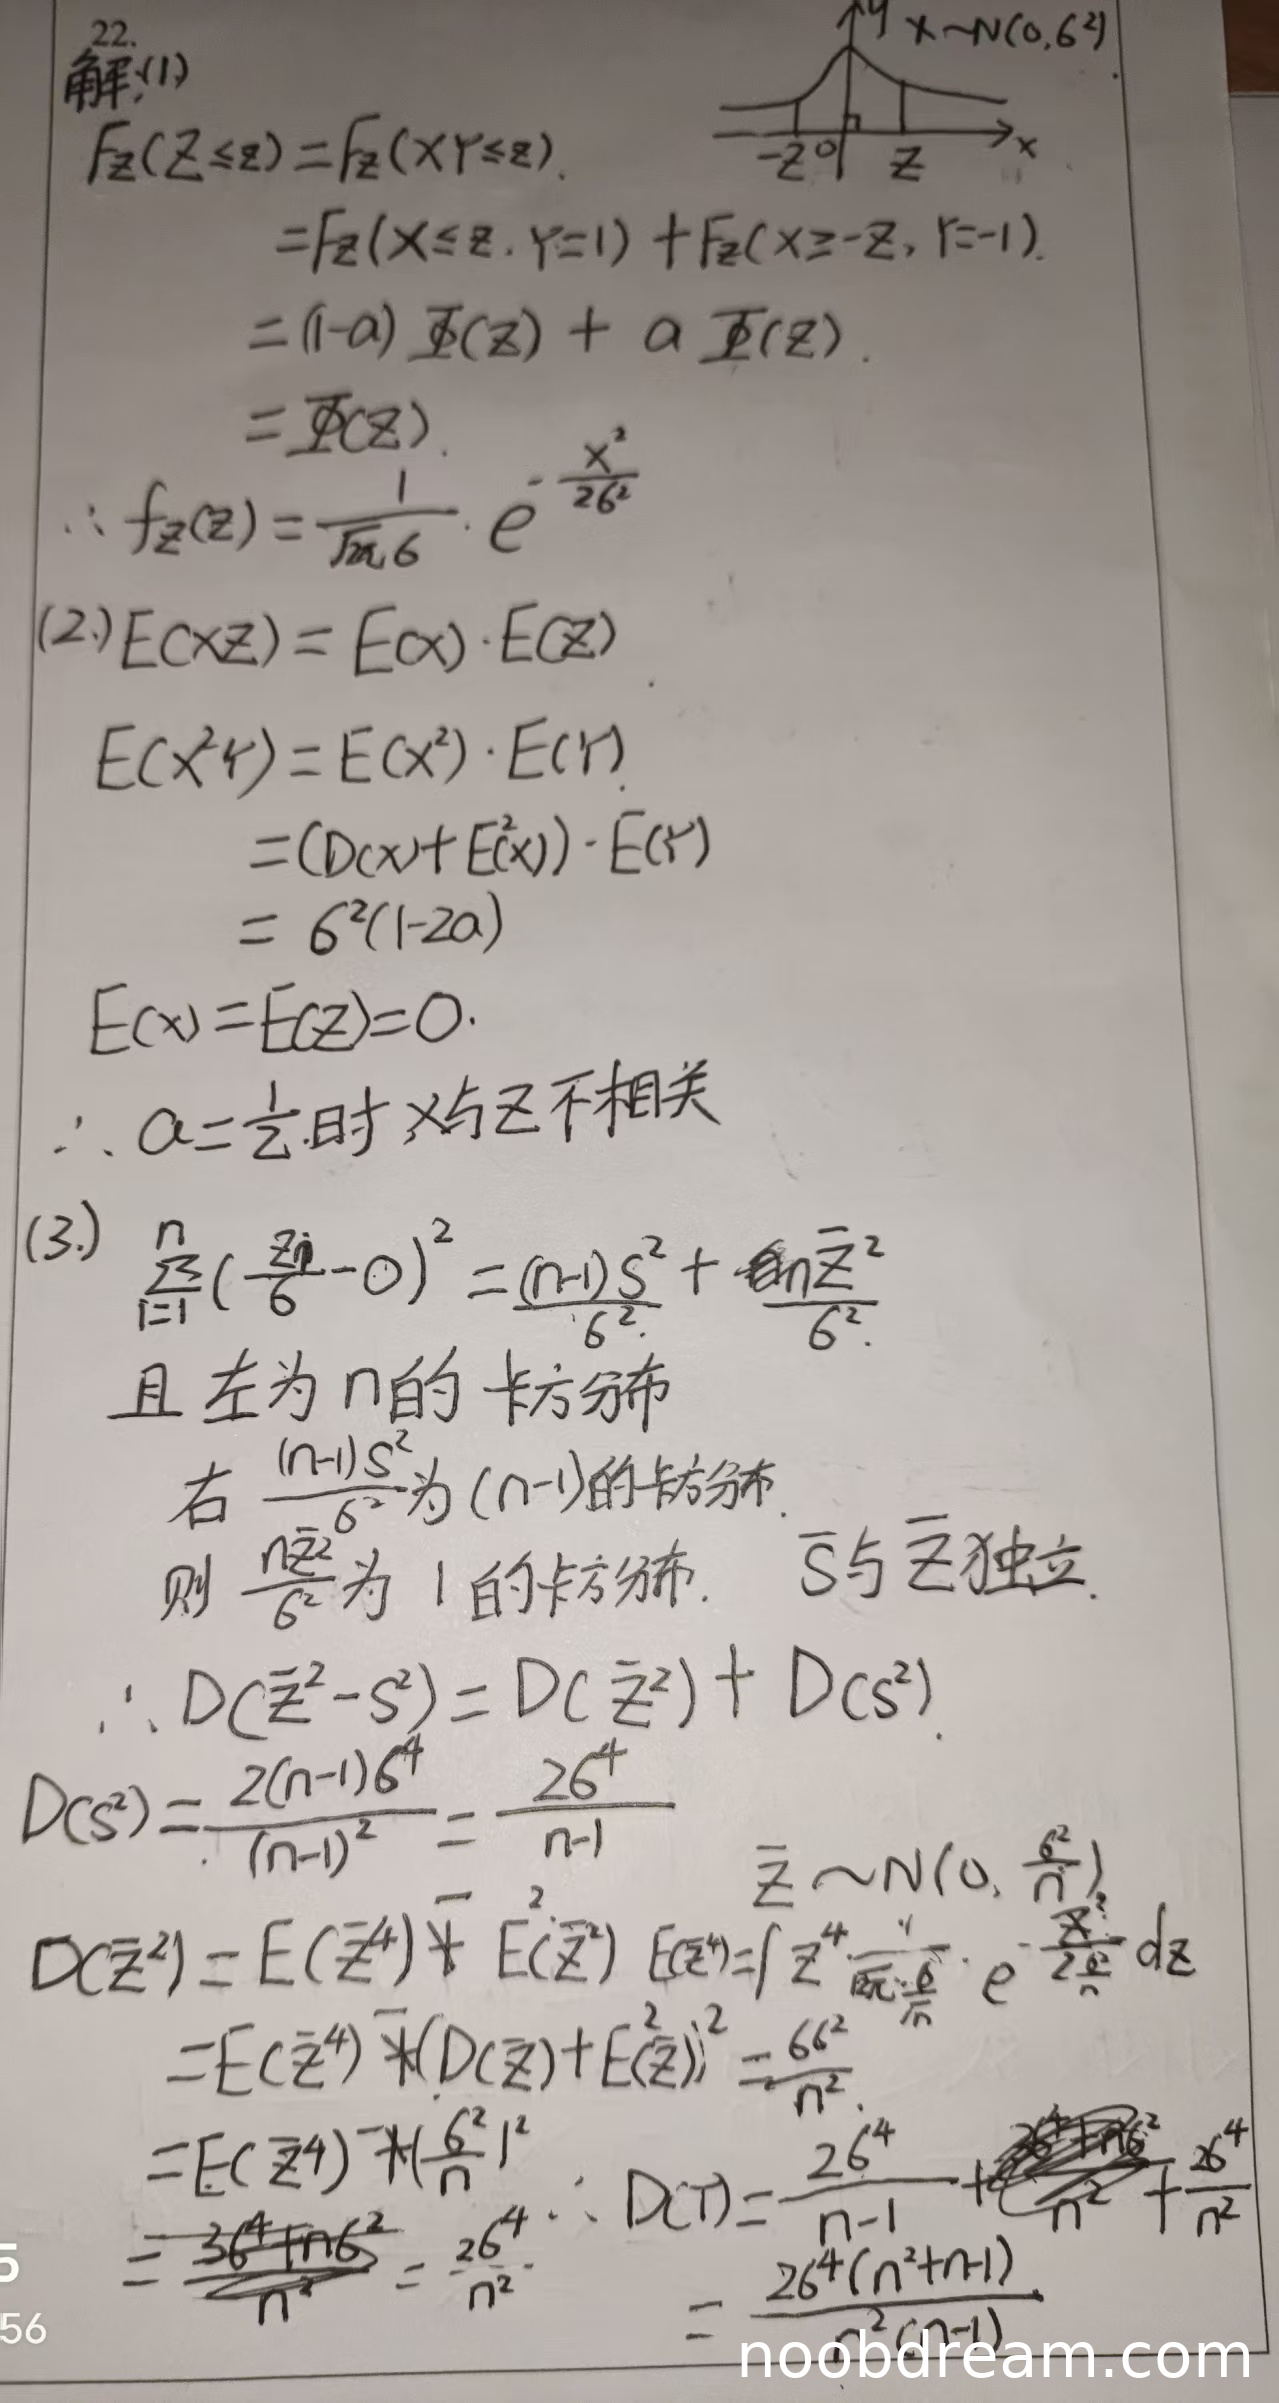 22.
解:(1)
y X~N(0,6²)
-Z 0 Z x
Fz(Z≤z)=Fz(XY≤z).
=Fz(X≤z.Y=1)+Fz(X≥-Z,Y=-1).
=(1-a)Φ(Z)+aΦ(Z).
=Φ(Z).
∴fz(z)=1/(√2π6)·e^(-x²/26²)
(2.)E(XZ)=E(X)·E(Z)
E(X²Y)=E(X²)·E(Y)
=(D(X)+E²(X))·E(Y)
=6²(1-2a)
E(X)=E(Z)=0.
∴a=1/2时X与Z不相关
(3.) Σ(i=1,n)(Zi/6-0)²=(n-1)S²/6²+nZ̄²/6².
且左为n的卡方分布
右(n-1)S²/6²为(n-1)的卡方分布.
则nZ̄²/6²为1的卡方分布. S̄与Z̄独立.
∴D(Z̄²-S²)=D(Z̄²)+D(S²).
D(S²)=2(n-1)6⁴/(n-1)²=26⁴/(n-1)
Z̄~N(0,6²/n)
D(Z̄²)=E(Z̄⁴)-E²(Z̄²) E(Z̄⁴)=∫Z⁴·1/(√2π·6/√n)·e^(-Z²/(2·6²/n))dz
=E(Z̄⁴)-(D(Z̄)+E²(Z̄))² =66²/n².
=E(Z̄⁴)-(6²/n)²
=26⁴/n². ∴D(T)=26⁴/(n-1)+26⁴/n²
=26⁴(n²+n-1)/(n²(n-1))
5
56
noobdream.com